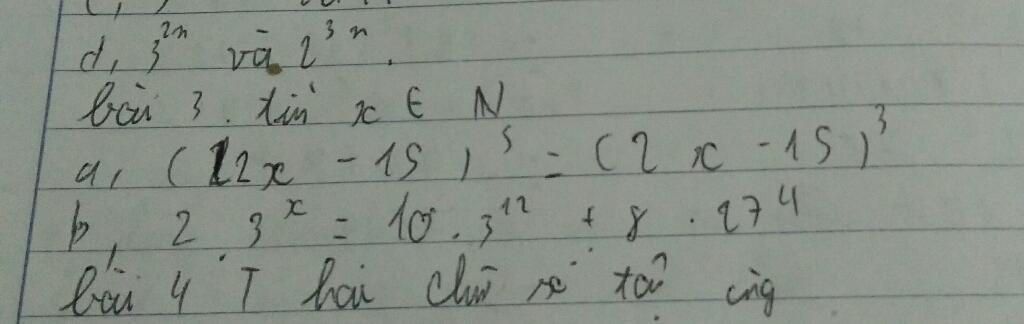 d, 3²ⁿ và 2³ⁿ.
bài 3. tìm x ∈ N
a, (2x - 15)⁵ = (2x - 15)³
b, 2 . 3ˣ = 10 . 3¹² + 8 . 27⁴
bài 4 T hai chữ số tận cùng